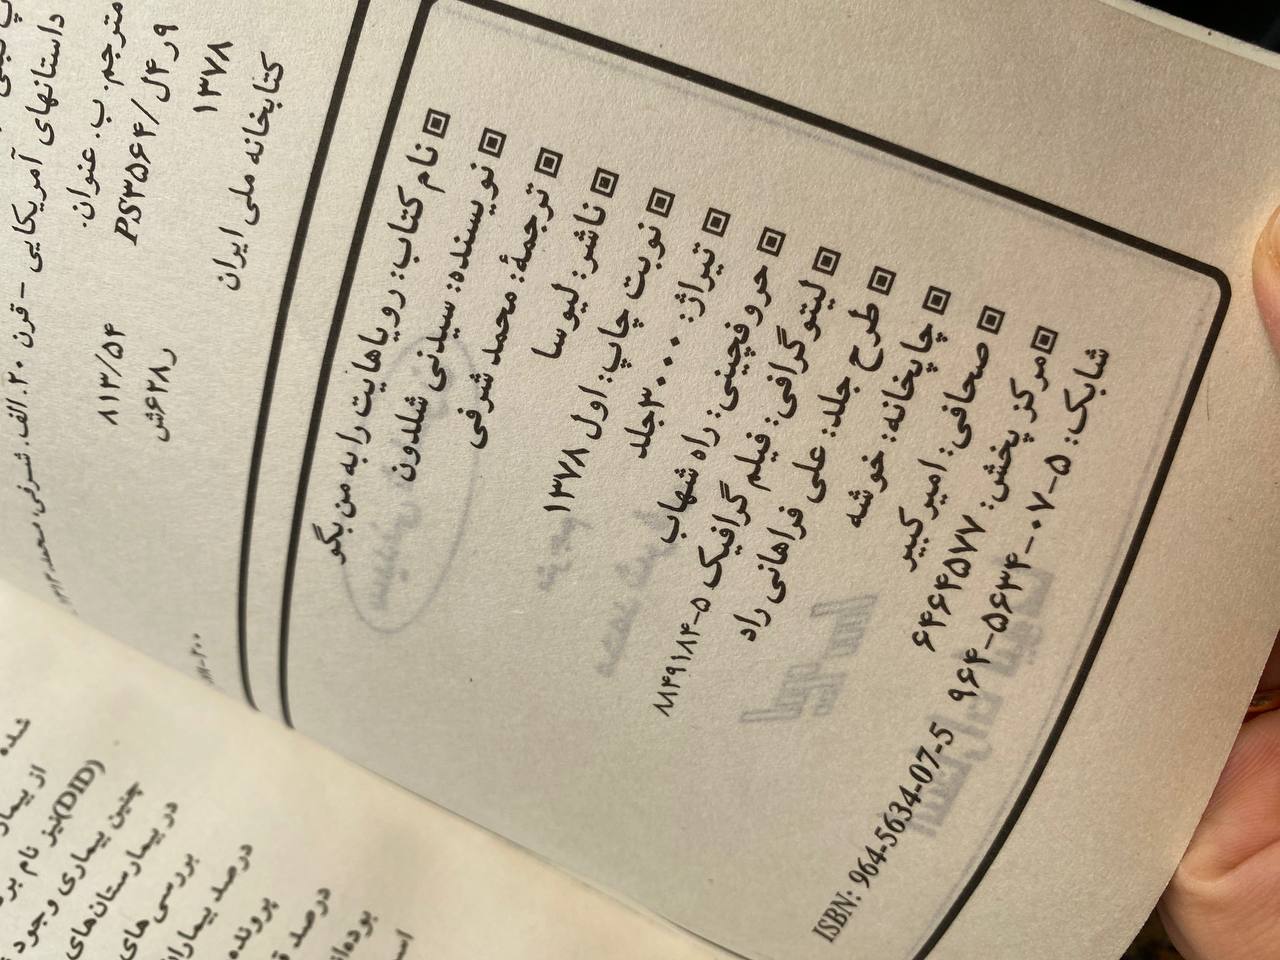 داستانهای آمریکایی - قرن ۲۰. الف. شرفی، محمد،
مترجم. ب. عنوان.
۹ر۴ل/PS۳۵۶۴
۸۱۳/۵۴
۱۳۷۸
ر۶۲۸ش
کتابخانه ملی ایران
نام کتاب: رویاهایت را به من بگو
نویسنده: سیدنی شلدون
ترجمهٔ: محمد شرفی
ناشر: لیوسا
نوبت چاپ: اول ۱۳۷۸
تیراژ: ۳۰۰۰جلد
حروفچینی: راه شهاب
لیتوگرافی: فیلم گرافیک ۵-۸۸۴۹۱۸۴
طرح جلد: علی فراهانی راد
چاپخانه: خوشه
صحافی: امیرکبیر
مرکز پخش: ۶۴۶۴۵۷۷
شابک: ۵-۰۷-۵۶۳۴-۹۶۴
ISBN: 964-5634-07-5
شده
از بیمار
(DID)نیز نام بر
چنین بیماری وجود
در بیمارستان‌های
بررسی‌های
درصد بیمارا
پرونده
درصد